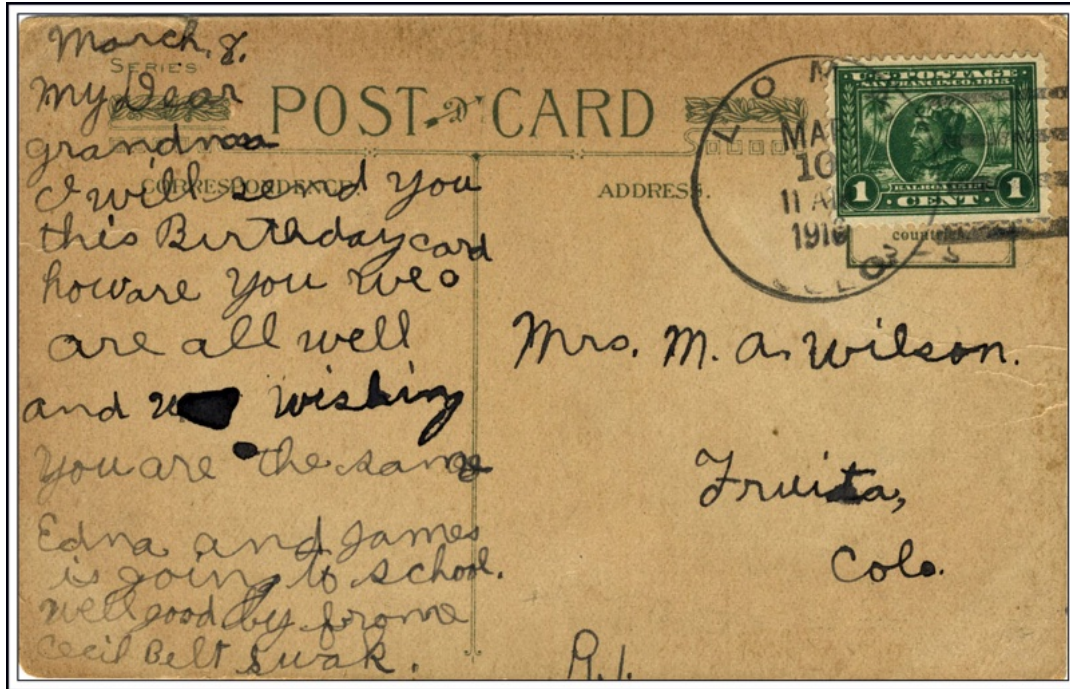 March, 8.
SERIES
My Dear
grandma
POST CARD
CORRESPONDENCE.
ADDRESS.
I will send you
this Birthday card
how are you we
are all well
and wishing
you are the same
Edna and James
is going to school.
well good by frome
Cecil Belt
U.S. POSTAGE
SAN FRANCISCO 1915
BALBOA 1513
1 CENT 1
LOMA
MAR
10
11 AM
1916
COLO
Mrs. M. A. Wilson.
Fruita,
Colo.